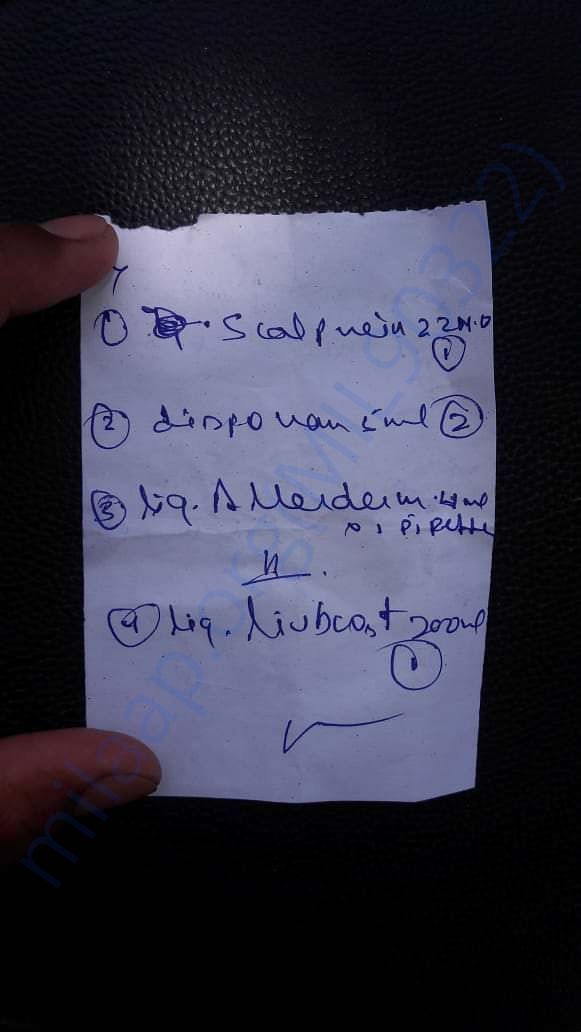 ① Scalp vein 22 N.O
①
② dispo van 5ml ②
③ liq. Allerderm
pipette
④ liq. Livboost 200ml
①
milaap.org(MII_90322)